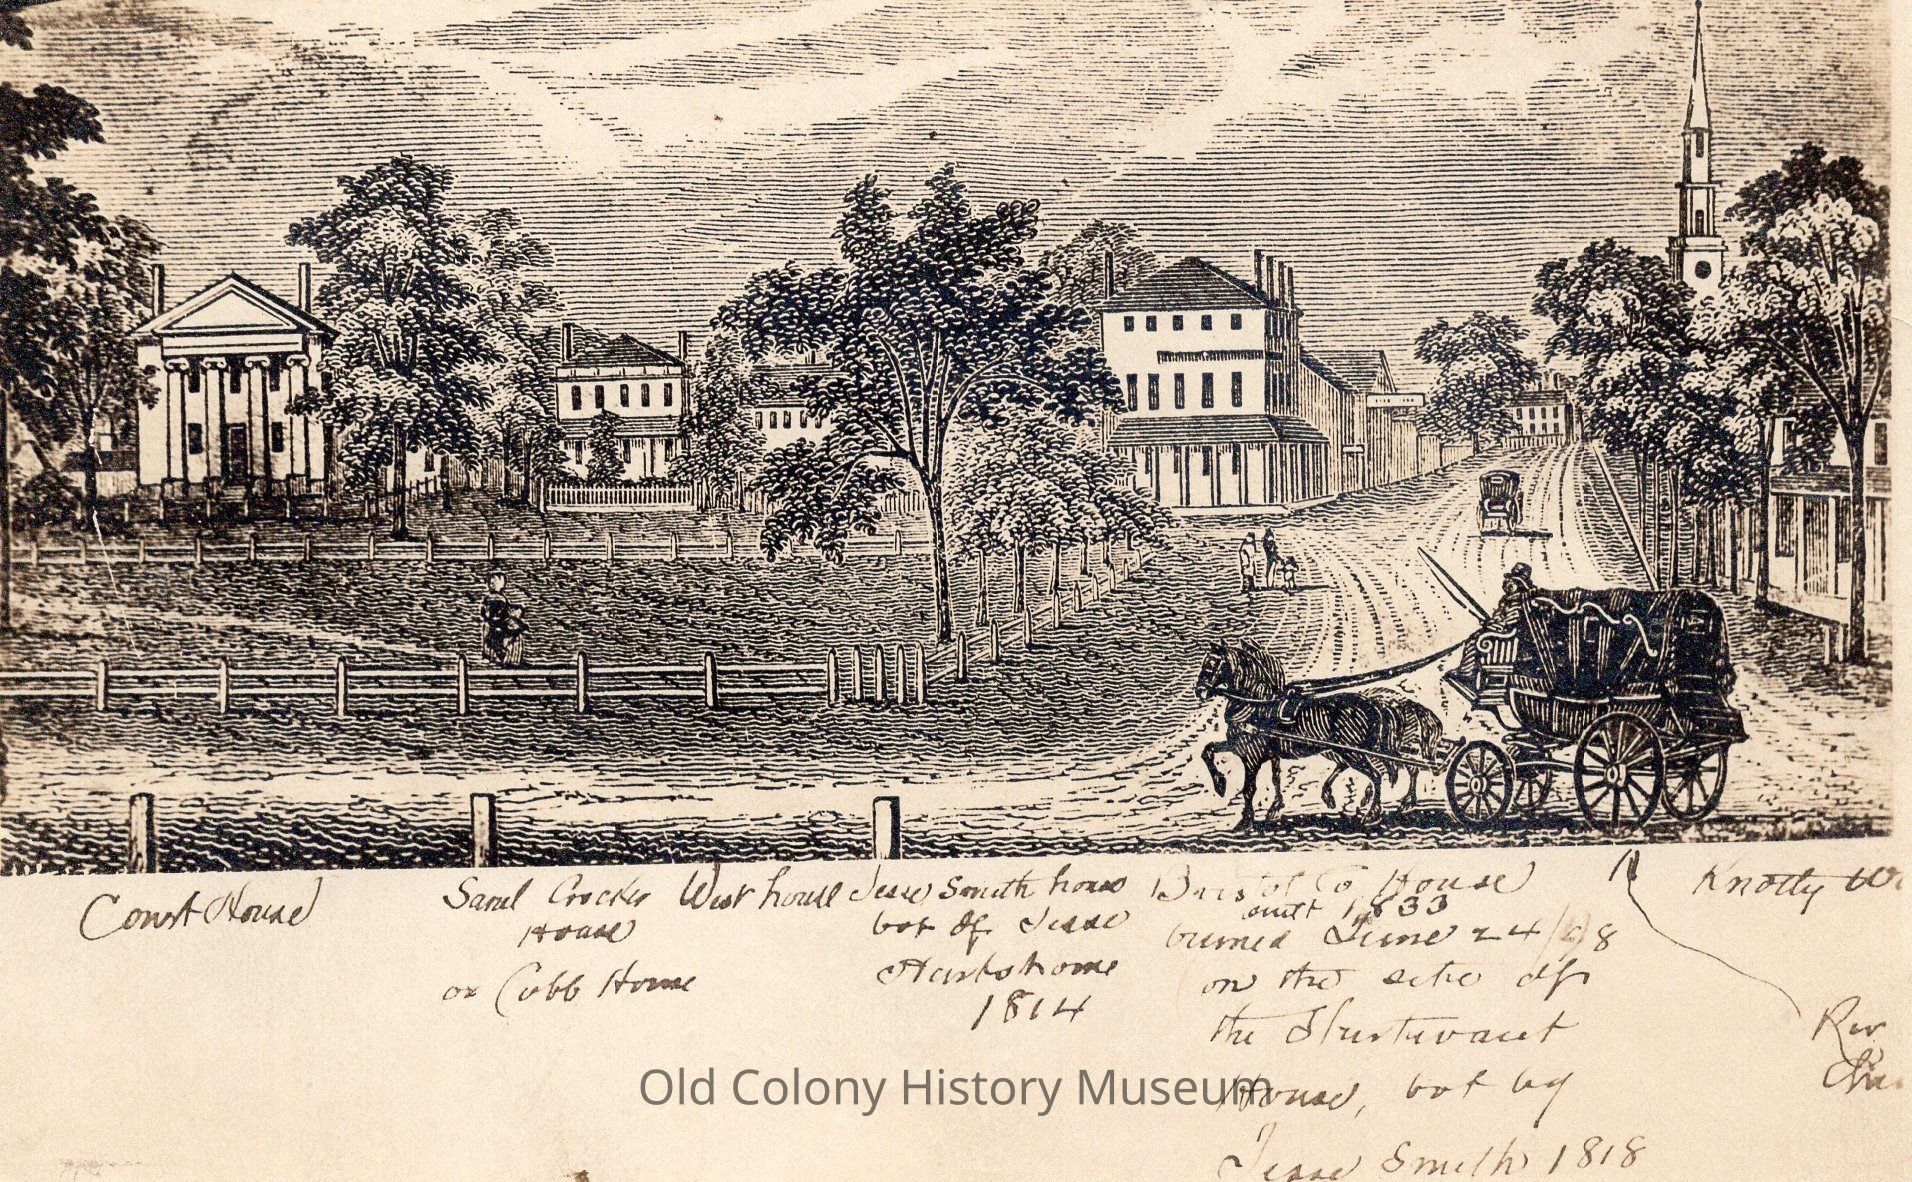 Court House
Saml Crocker
House
or Cobb House
West house
Jesse Smith house
bot of Jesse
Hartshorne
1814
Bristol Co House
built 1833
burned June 24/98
on the site of
the Sturtivant
House, bot by
Jesse Smith 1818
Knotty
Old Colony History Museum